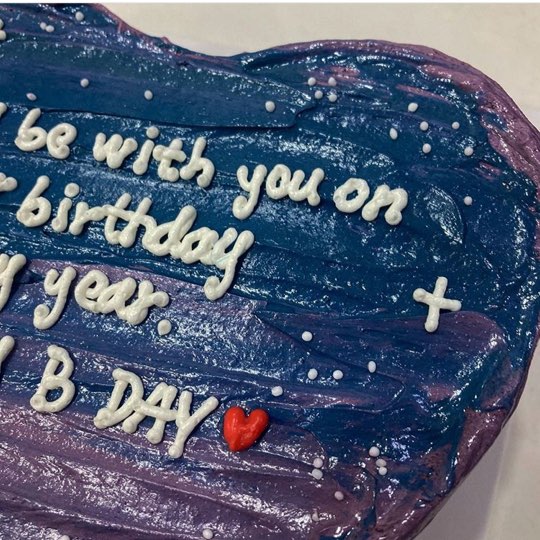 be with you on
birthday
year.
B DAY